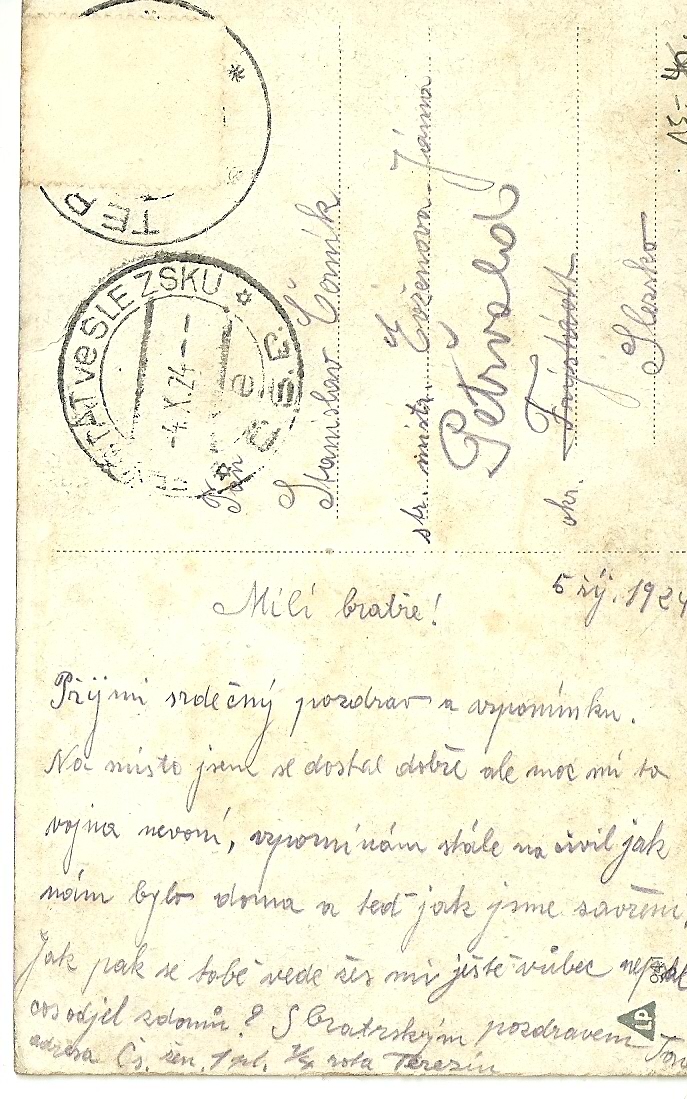 TER
VE SLEZSKU
-4.X.24-
Č.S.R.
Pan
Stanislav
str. mistr.
Petřvald
okr. Fryštát
Slezsko
15-40.
5 říj. 1924
Milí bratře!
Přijmi srdečný pozdrav a vzpomínku.
Na místo jsem se dostal dobře ale moc mi ta
vojna nevoní, vzpomínám stále na civil jak
nám bylo doma a teď jak jsme zavřeni,
Jak pak se tobě vede žes mi ještě vůbec
cos odjel z domů? S bratrským pozdravem
adresa Čs. žen. 1 pl. rota Terezín
LP